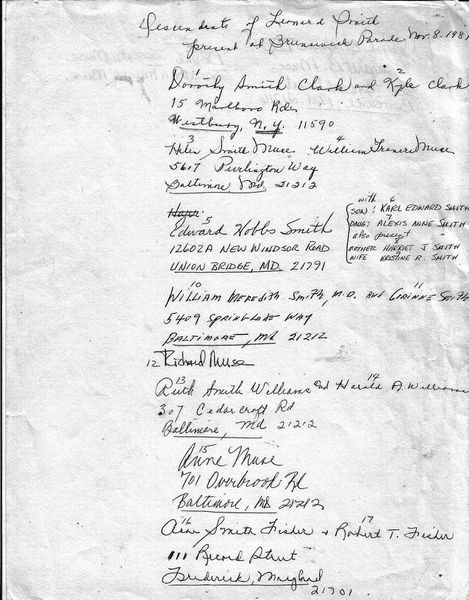 Descendents of Leonard Smith
present at Brunswick Parade Nov. 8. 1981
1 2
Dorothy Smith Clark and Kyle Clark
15 Marlboro Rd.
Westbury, N.Y. 11590
3 4
Helen Smith Muse William Francis Muse
5617 Purlington Way
Baltimore Md 21212
Major 5
Edward Hobbs Smith
12602A NEW WINDSOR ROAD
UNION BRIDGE, MD. 21791
with 6
SON: KARL EDWARD SMITH
7
DAUG: ALEXIS ANNE SMITH
also present
8
MOTHER HARRIET J SMITH
9
WIFE KRISTINE R. SMITH
10 11
WILLIAM MEREDITH SMITH, M.D. AND CORINNE SMITH
5409 SPRINGLAKE WAY
BALTIMORE, Md 21212
12 Richard Muse
13 14
Ruth Smith Williams and Harold A. Williams
307 Cedarcroft Rd
Baltimore, Md 21212
15
Anne Muse
701 Overbrook Rd
Baltimore, MD 21212
16 17
Smith Fisher + Robert T. Fisher
111 Record Street
Frederick, Maryland
21701